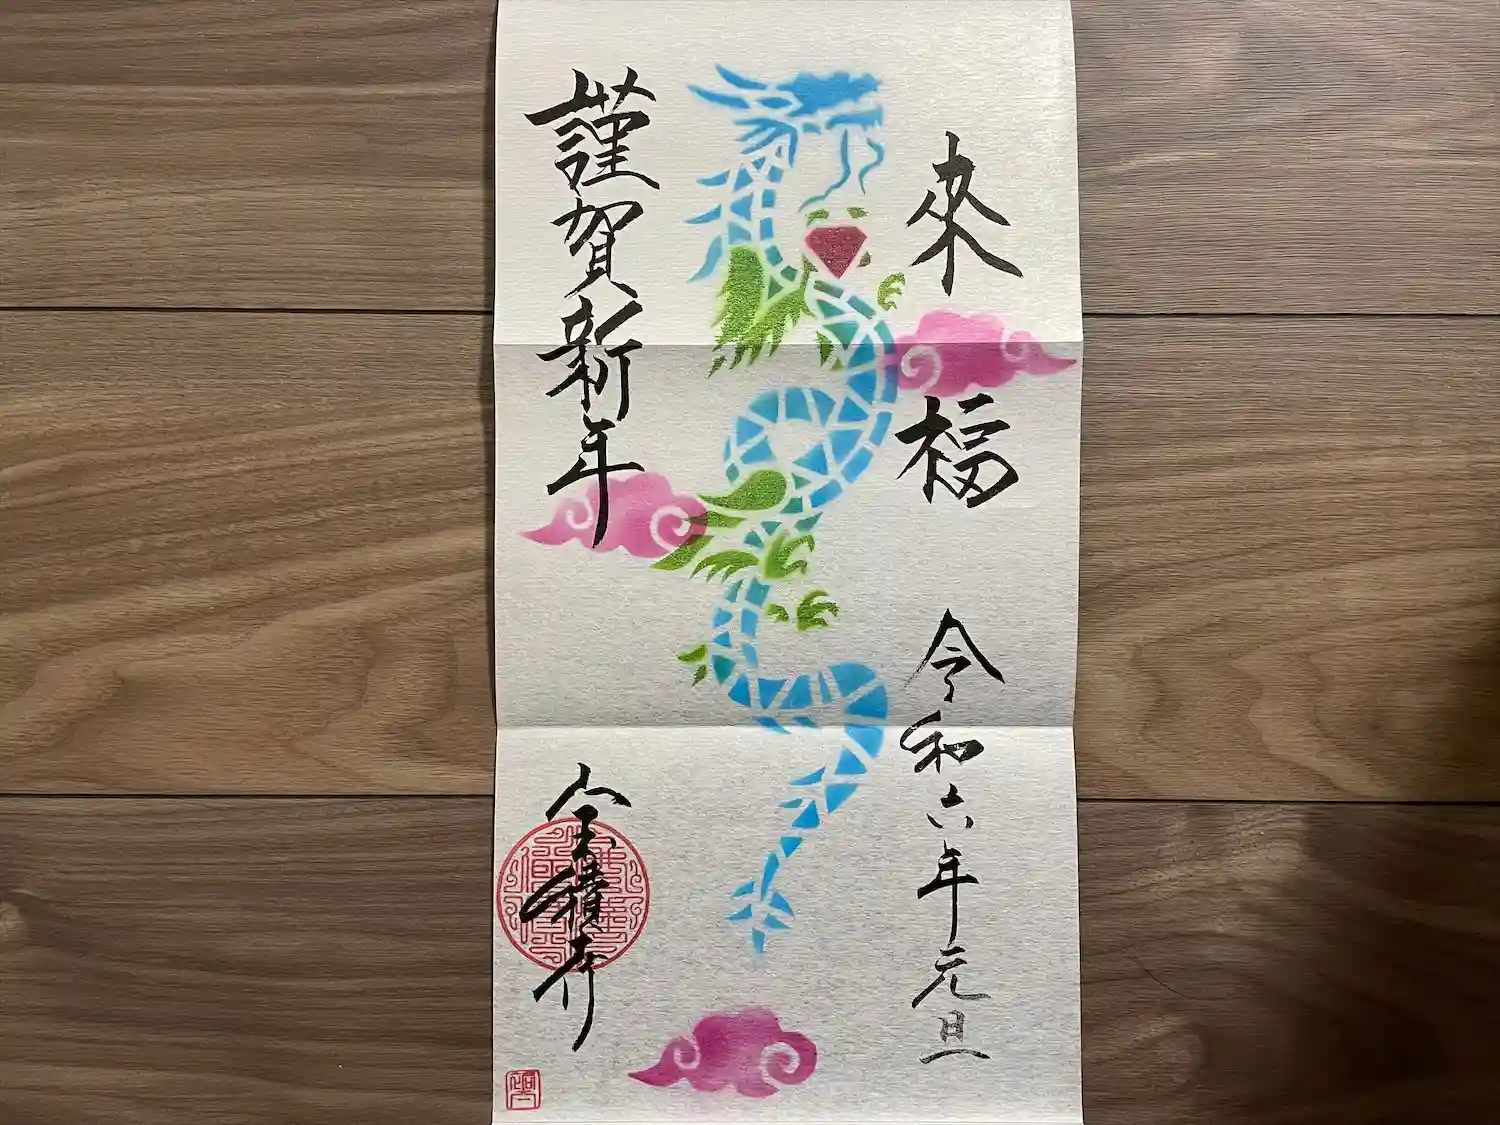 來福
令和六年元旦
謹賀新年
宝積寺